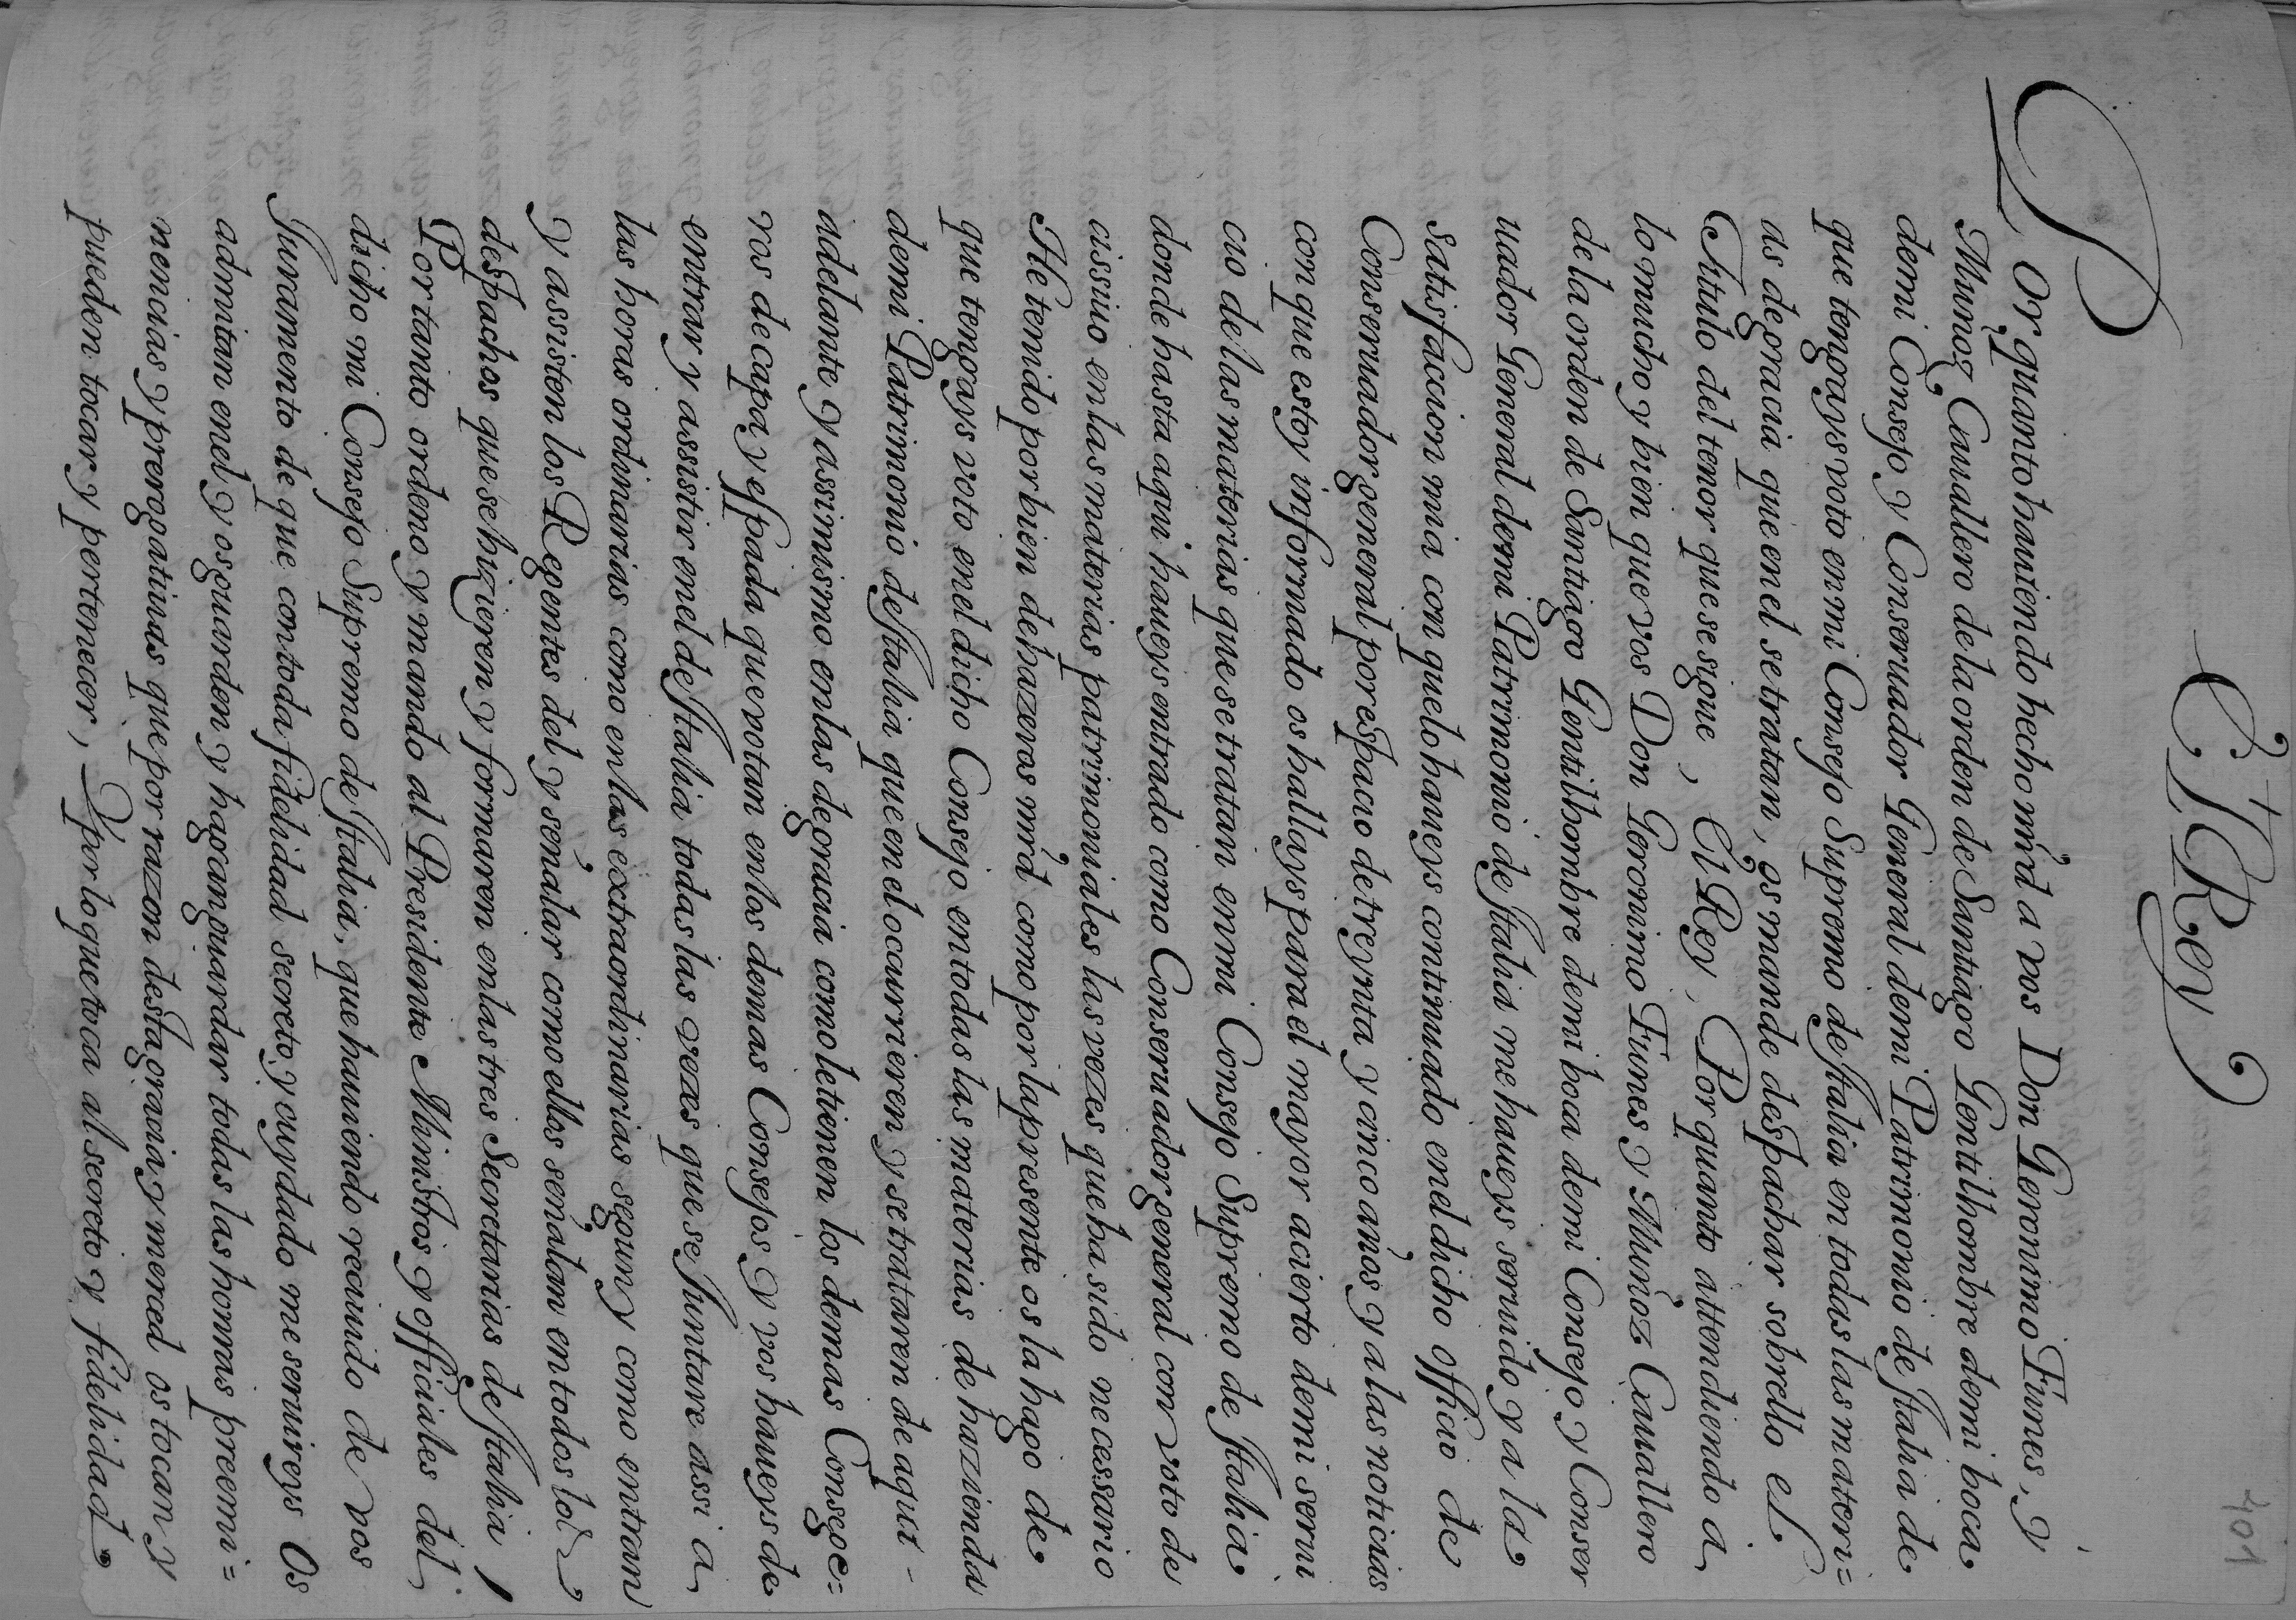 401
El Rey
Por quanto hauiendo hecho mrd a vos Don Geronimo Funes, y
Munoz Cauallero de la orden de Santiago Gentilhombre de mi boca
de mi Consejo y Conseruador General de mi Patrimonio de Italia de
que tengays voto en mi Consejo Supremo de Italia en todas las materi=
as de gracia que en el se tratan, os mande despachar sobrello el
Titulo del tenor que se sigue, El Rey, Por quanto attendiendo a
lo mucho y bien que vos Don Geronimo Funes y Muñoz Cauallero
de la orden de Santiago Gentilhombre de mi boca de mi Consejo y Conser
uador General de mi Patrimonio de Italia me haueys seruido y a la
satisfaccion mia con que lo haueys continuado en el dicho officio de
Conseruador general por espacio de treynta y cinco años y a las noticias
con que estoy informado os hallays para el mayor acierto de mi serui
cio de las materias que se tratan en mi Consejo Supremo de Italia
donde hasta aqui haueys entrado como Conseruador general con voto de
cissiuo en las materias patrimoniales las vezes que ha sido necessario
He tenido por bien de hazeros mrd como por la presente os la hago de
que tengays voto en el dicho Consejo en todas las materias de hazienda
de mi Patrimonio de Italia que en el occurrieren y se trataren de aqui -
adelante y assimismo en las de gracia como le tienen los demas Consege=
ros de capa y espada que votan en los demas Consejos y vos haueys de
entrar y assistir en el de Italia todas las vezes que se Juntare assi a
las horas ordinarias como en las extraordinarias segun y como entran
y assisten los Regentes del y señalar como ellos señalan en todos los
despachos que se hizieren y formaren en las tres Secretarias de Italia /
Por tanto ordeno y mando al Presidente Ministros y officiales del
dicho mi Consejo Supremo de Italia, que hauiendo reciuido de vos
Juramento de que con toda fidelidad secreto, y cuydado me seruireys Os
admitan en el y os guarden y hagan guardar todas las honras preemi=
nencias y prerogatiuas que por razon desta gracia y merced os tocan y
pueden tocar y pertenecer, Y por lo que toca al secreto y fidelidad